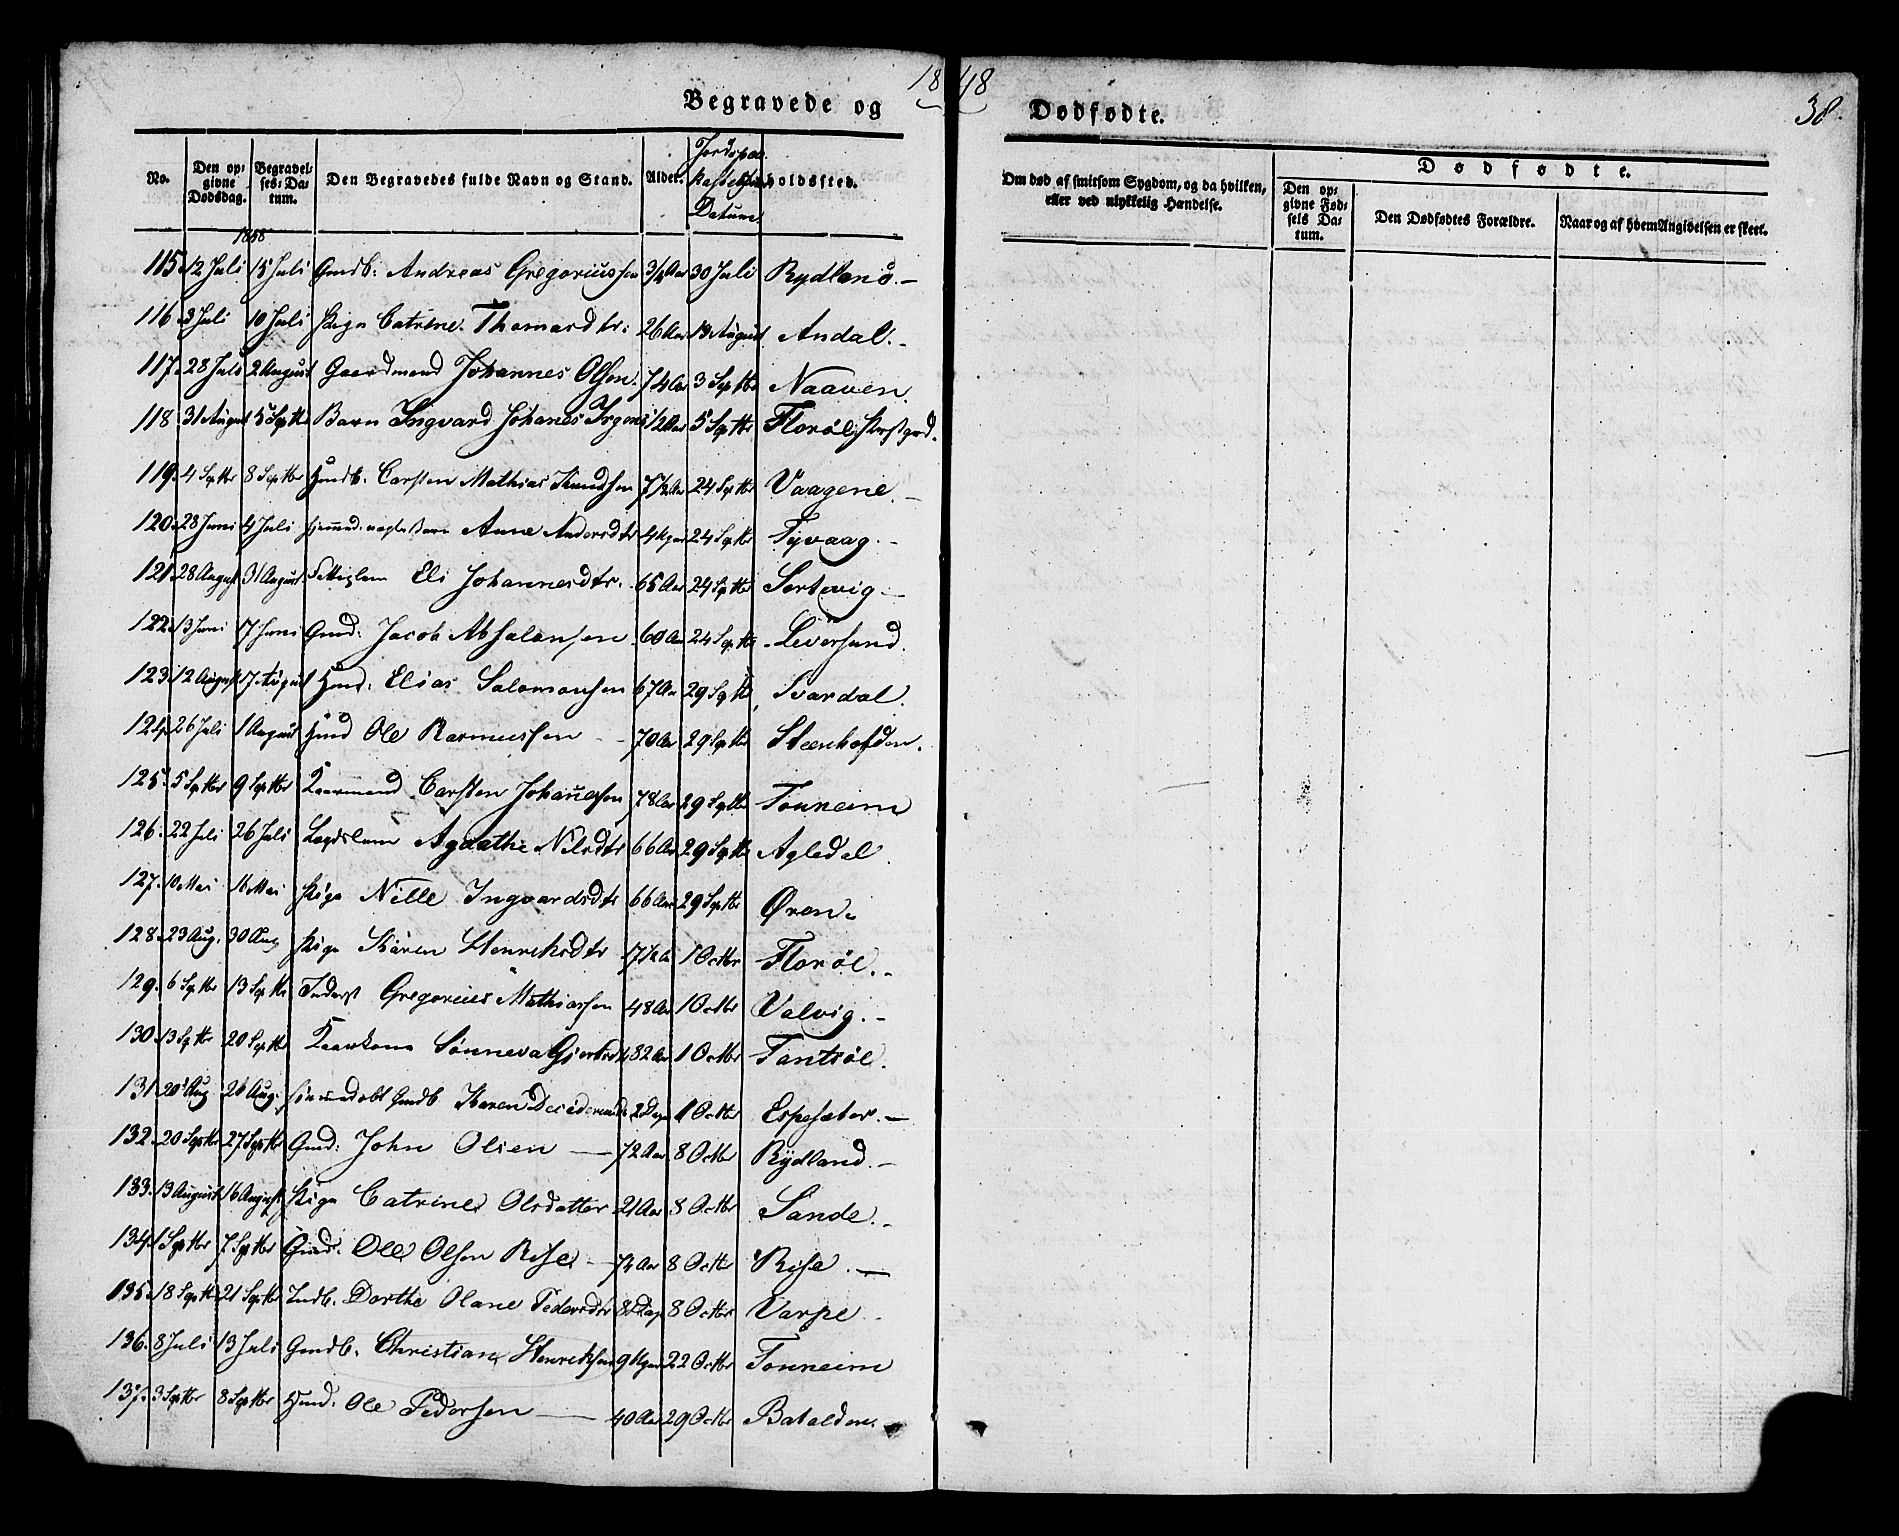 18 48
38.
Begravede og Dødfødte.
No. Den opgivne Dødsdag. Begravelses-Datum. Den Begravedes fulde Navn og Stand. Alder. Jordspaakastelsens Datum. holdssted.
Om død af smitsom Sygdom, og da hvilken, eller ved ulykkelig Hændelse.
Dødfødte.
Den opgivne Fødsels Datum. Den Dødfødtes Forældre. Naar og af hvem Angivelsen er skeet.
1848
115. 12 Juli 15 Juli Gmdb: Andreas Gregoriussen 3/4 Aar 30 Juli Rydland.-
116. 3 Juli 10 Juli Pige Catrine Thomasdtr: 26 Aar 13 August Andal.-
117. 28 Juli 2 August Gaardmand Johannes Olsen. 74 Aar 3 Septbr Naaven.
118. 31 August 5 Septbr Barn Ingvard Johanes Irgens 1/2 Aar 5 Septbr Florøe,
119. 4 Septbr 8 Septbr Hmdb. Carsten Mathias Knudsen 7 1/2 Aar 24 Septbr Vaagene.-
120. 28 Juni 4 Juli Anne Andersdtr 4 Uger 24 Septbr Tyvaag.-
121. 28 August 31 August Eli Johannesdtr. 65 Aar 24 Septbr Sortevig-
122. 13 Juni 17 Juni Gmd: Jacob Absalonsen 60 Aar 24 Septbr Leversund.
123. 12 August 17 August Hmd: Elias Salomonsen 67 Aar 29 Septbr Svardal.
124. 26 Juli 1 August Hmd Ole Rasmussen - 70 Aar 29 Septbr Steenhofden.
125. 5 Septbr 9 Septbr Kaarmand Carsten Johannessen 78 Aar 29 Septbr Tonheim
126. 22 Juli 26 Juli Lægdslem Agaathe Nilsdtr 66 Aar 29 Septbr Agledal.
127. 10 Mai 16 Mai Pige Nille Ingvardsdtr 66 Aar 29 Septbr Øren.
128. 23 Aug. 30 Aug Pige Karen Henriksdtr 1 Octbr Florøe.-
129. 6 Septbr 13 Septbr Inderst Gregorius Mathiassen 48 Aar 1 Octbr Valvig.-
130. 13 Septbr 20 Septbr Kaarkone Sønneva 82 Aar 1 Octbr
131. 20 Aug 26 Aug. Gmdb Karen 2 Dage 1 Octbr Espesæter.-
132. 20 Septbr 27 Septbr Gmd: John Olsen - 72 Aar 8 Octbr Rydland.-
133. 13 August 16 August Pige Catrine Olsdatter 21 Aar 8 Octbr Sande.-
134. 1 Septbr 7 Septbr Gmd. Ole Olsen Rise - 74 Aar 8 Octbr Rise.-
135. 18 Septbr 21 Septbr Indb. Dorthe Olane Pedersdtr 8 Dage 8 Octbr Varpe.
136. 8 Juli 13 Juli Gmdb. Christian Henriksen 9 Uger 22 Octbr Tonheim
137. 3 Septbr 8 Septbr Hmd. Ole Pedersen - 40 Aar 29 Octbr Batalden.